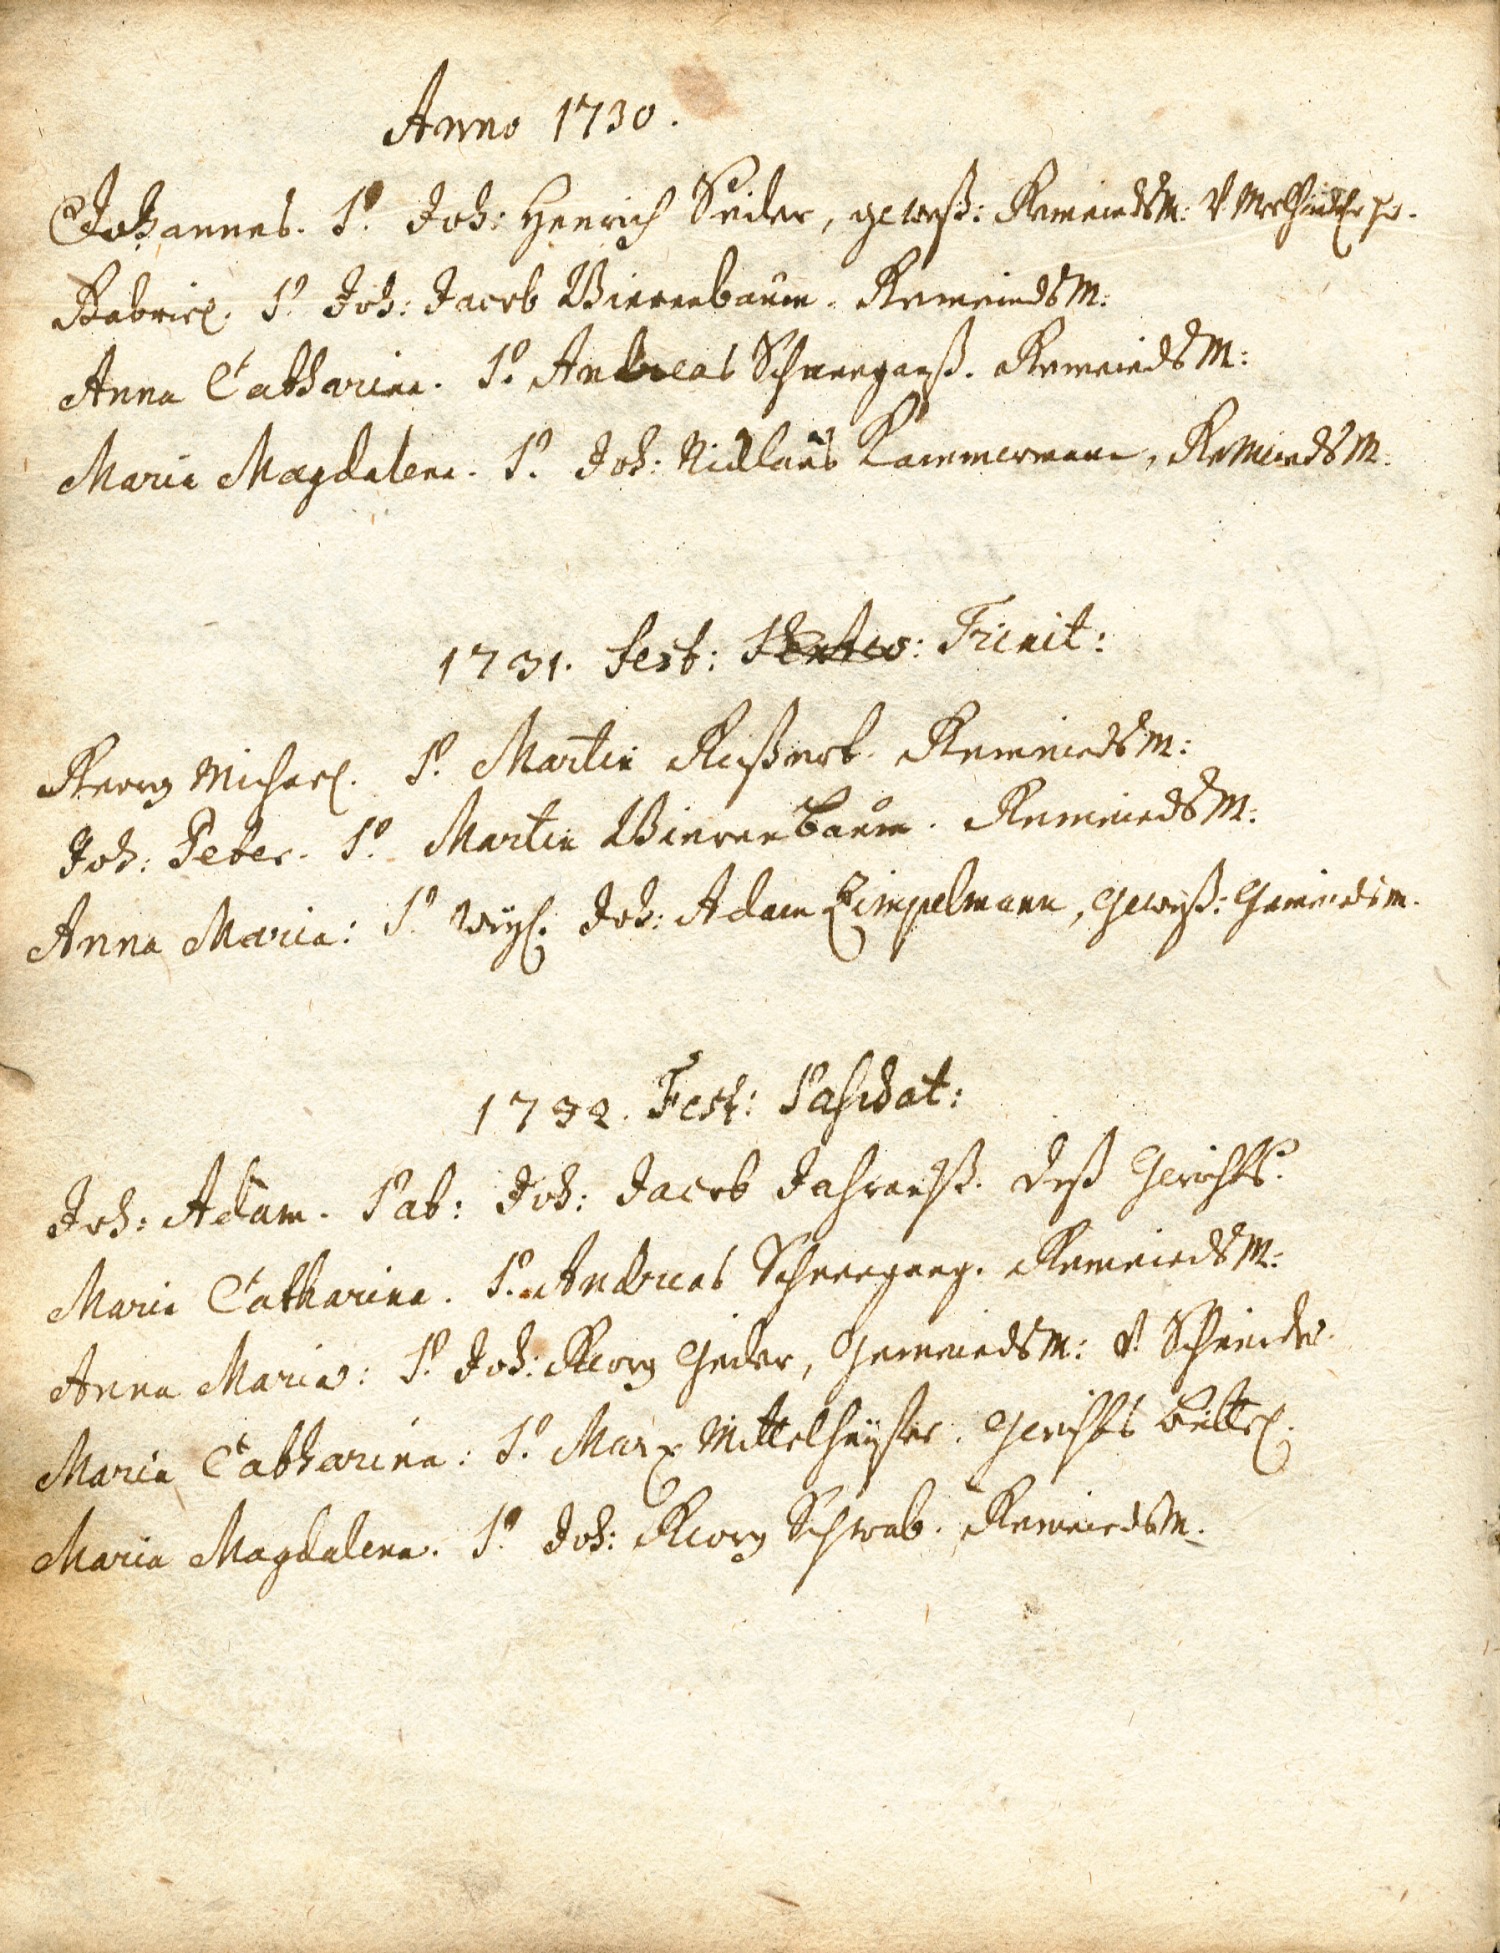 Anno 1730.
Johannes. P. Joh: Henrich Seider, geweß: Gemeindsm: v
Gabriel. P. Joh: Jacob Bierenbaum. Gemeindsm:
Anna Catharina. P. Andreas Schneeganß. Gemeindsm:
Maria Magdalena. P. Joh: Nicklaus Kammermann, Gemeindsm.
1731. Fest: Trinit:
Georg Michael. P. Martin Gemeindsm:
Joh: Peter. P. Martin Bierenbaum. Gemeindsm:
Anna Maria: P. weyl. Joh: Adam Zimpelmann, geweß: Gemeindsm.
1732. Fest: Paschat:
Joh: Adam. Pat: Joh: Jacob deß Gerichts.
Maria Catharina. P. Andreas Schneegang. Gemeindsm:
Anna Maria: P. Joh: Georg Geder, Gemeindsm: v. Schneider.
Maria Catharina: P. Marx Mittelheyser. Gerichts bittel.
Maria Magdalena. P. Joh: Georg Schwab. Gemeindsm.